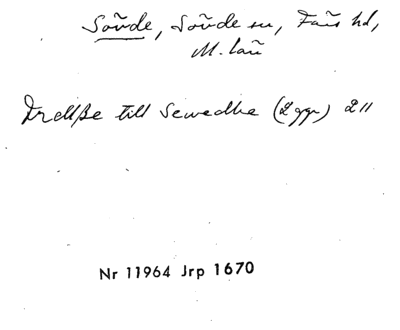 Sonde, Sonde sn, Fars hd,
M. län
till Sewedhe (2 ggr) 2 11
Nr 11964 Jrp 1670